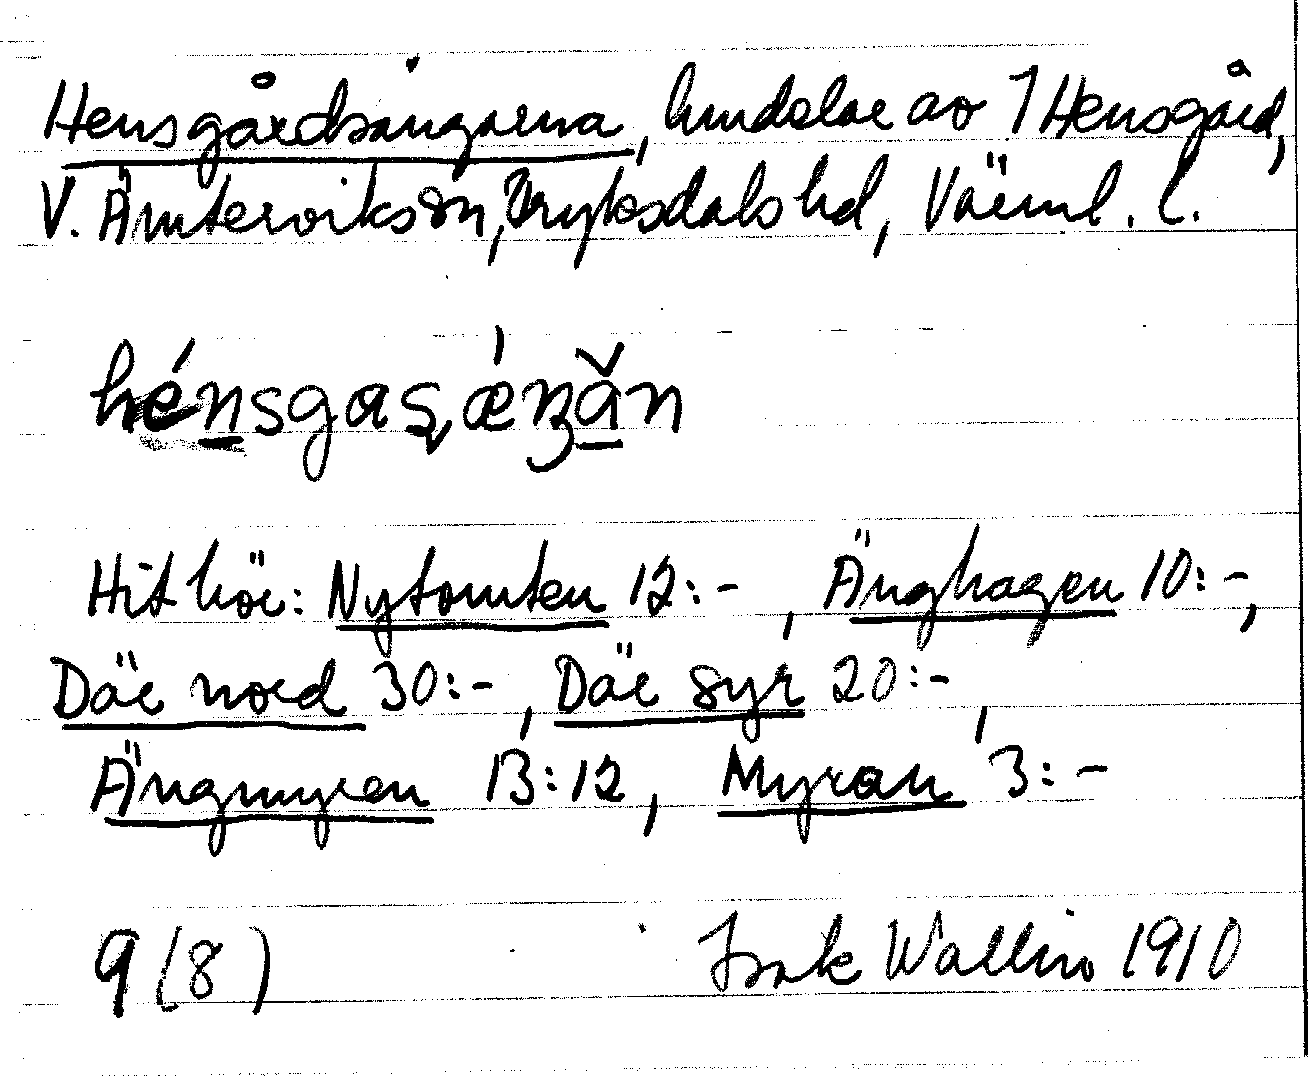 Hensgårdsängarna, hmdelar av 7 Hensgård,
V. Ämterviks sn, Fryksdals hd, Värml. l.
Hit hör: Nytomten 12:-, Änghagen 10:-,
Där nord 30:-, Där syr 20:-,
Ängmyren 13:12, Myran 3:-
9 (8) Isak Wallin 1910